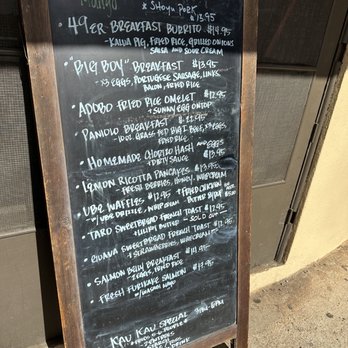 * Shoyu Pork
$13.95
• 49er Breakfast Burrito $14.95
- Kalua Pig, Fried Rice, Grilled Onions
Salsa and Sour Cream
• "Big Boy" Breakfast $13.95
- x3 Eggs, Portuguese Sausage, Link,
Bacon, Fried Rice
• Adobo Fried Rice Omelet $12.95
+ Sunny Egg on Top
• Paniolo Breakfast $22.95
- 10oz. Grass Fed Big I Beef, x3 Eggs
Fried Rice
• Homemade Chorizo Hash and Eggs
+ Dirty Sauce $13.95
• Lemon Ricotta Pancakes $13.95
- Fresh Berries, Honey, Whipcream
• Ube Waffles $12.95 + Fried Chicken
w/ Ube Drizzle, Whipcream Butter
• Taro Sweetbread French Toast $12.95
+ Lilikoi Butter - Sold Out -
• Guava Sweetbread French Toast $12.95
+ Strawberries, Whipcream
• Salmon Belly Breakfast $14.95
2 Eggs, Fried Rice
• Fresh Furikake Salmon $17.95
w/ Wasabi Mayo
Kau Kau Special 3pm-8pm
Drink